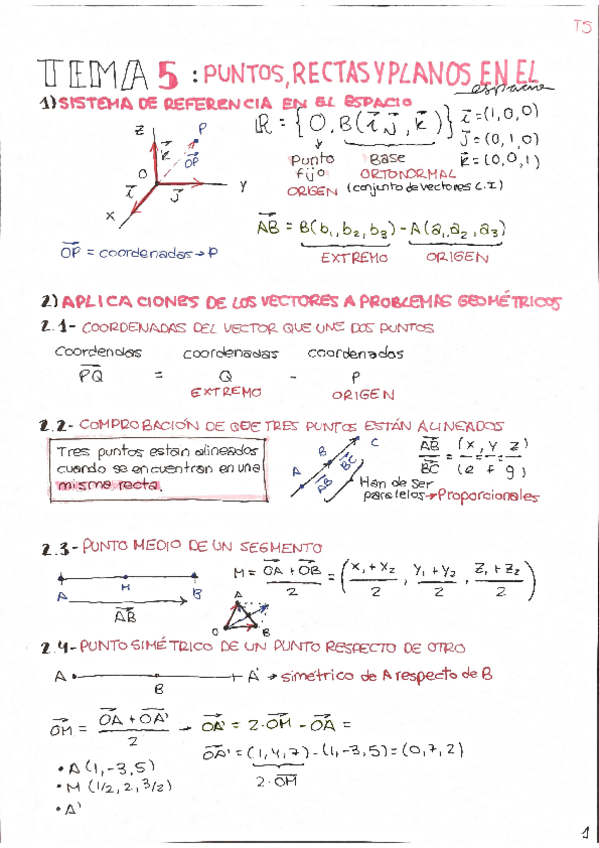 T5
TEMA 5: PUNTOS, RECTAS Y PLANOS EN EL espacio
1) SISTEMA DE REFERENCIA EN EL ESPACIO
Z P
k⃗ OP⃗
O
i⃗ j⃗ Y
X
OP⃗ = coordenadas → P
ℝ = {O, B(i⃗, j⃗, k⃗)}
i⃗ = (1,0,0)
j⃗ = (0,1,0)
k⃗ = (0,0,1)
Punto fijo ORIGEN
Base ORTONORMAL (conjunto de vectores L.I)
AB⃗ = B(b₁, b₂, b₃) - A(a₁, a₂, a₃)
EXTREMO ORIGEN
2) APLICACIONES DE LOS VECTORES A PROBLEMAS GEOMÉTRICOS
2.1- COORDENADAS DEL VECTOR QUE UNE DOS PUNTOS
Coordendas coordenadas coordenados
PQ⃗ = Q - P
EXTREMO ORIGEN
2.2- COMPROBACIÓN DE QUE TRES PUNTOS ESTÁN ALINEADOS
Tres puntos estan alineados
cuando se encuentran en una
misma recta.
A B C
AB⃗ BC⃗
Han de ser
paralelos → Proporcionales
AB⃗ / BC⃗ = (x, y z) / (e f g)
2.3- PUNTO MEDIO DE UN SEGMENTO
A M B
AB⃗
M = (OA⃗ + OB⃗)/2 = ((x₁+x₂)/2, (y₁+y₂)/2, (z₁+z₂)/2)
A
O B
2.4- PUNTO SIMÉTRICO DE UN PUNTO RESPECTO DE OTRO
A B A' → simétrico de A respecto de B
OM⃗ = (OA⃗ + OA'⃗)/2 → OA'⃗ = 2·OM⃗ - OA⃗ =
OA'⃗ = (1,4,7) - (1,-3,5) = (0,7,2)
2·OM⃗
• A (1,-3,5)
• M (1/2, 2, 3/2)
• A'
1